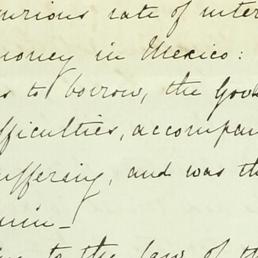 urious rate of inter
money in Mexico:
s to borrow, the Gov
fficulties, accompan
uffering, and was th
uin_
to the law of th